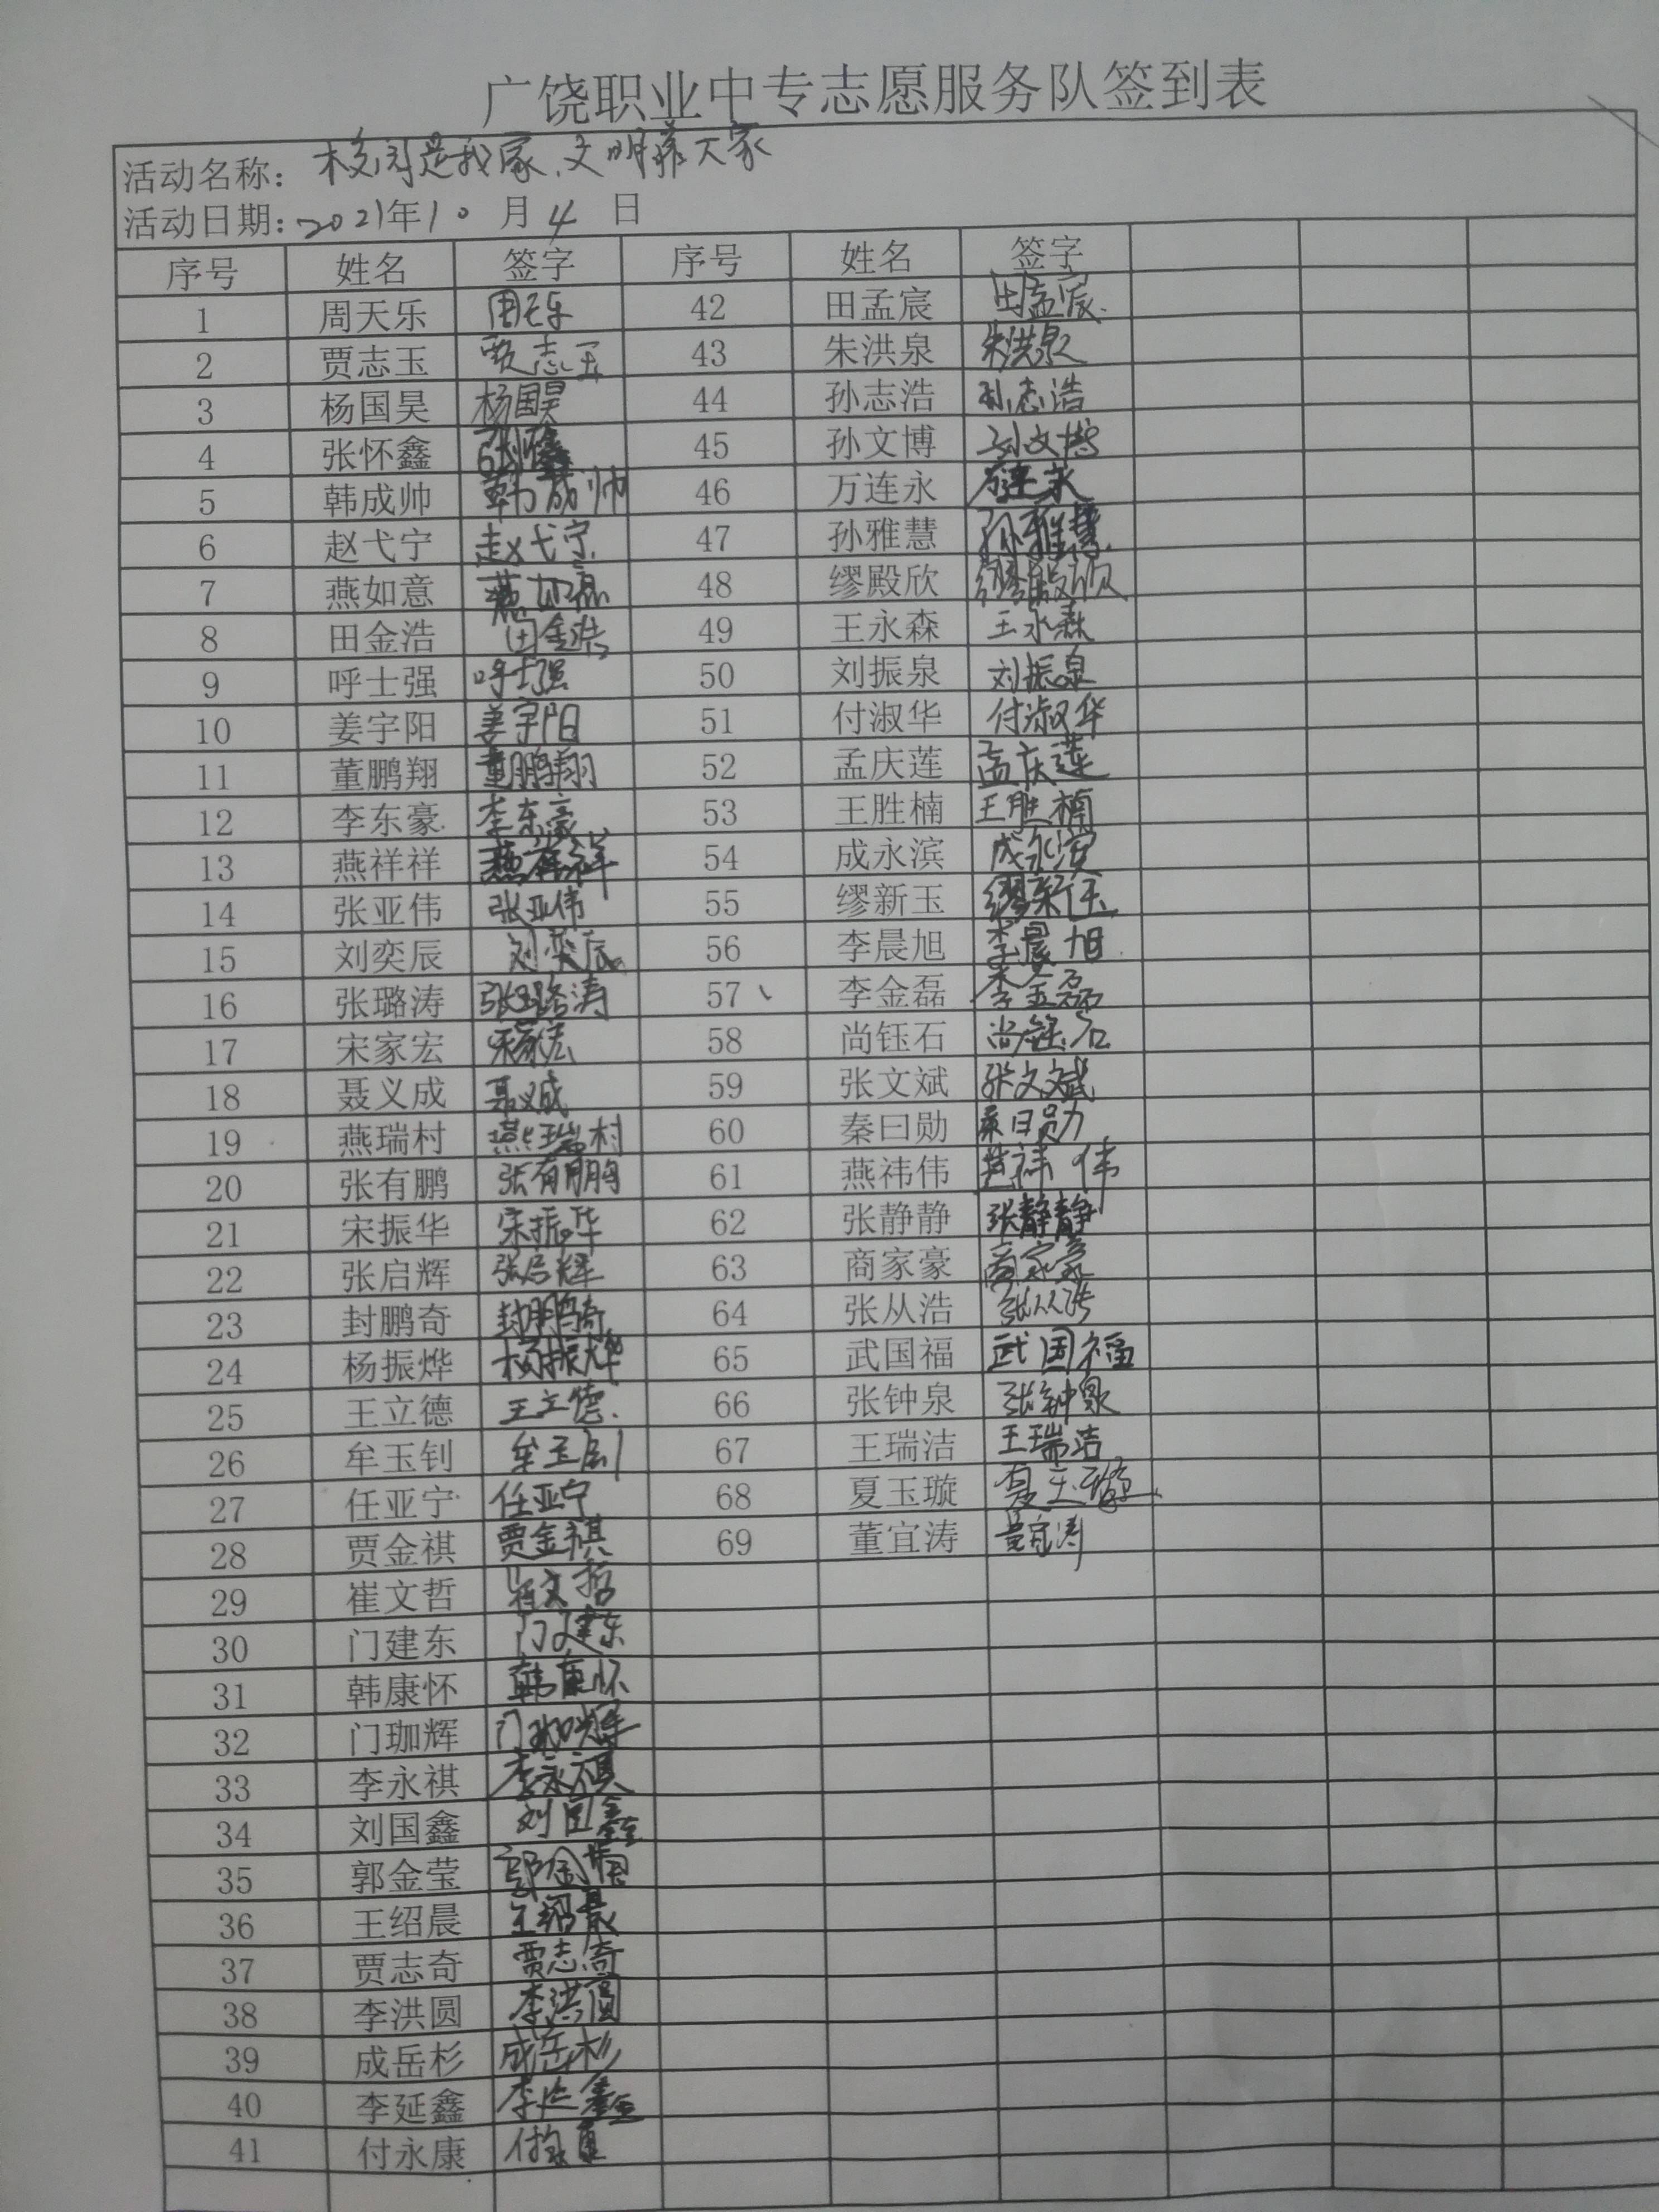 广饶职业中专志愿服务队签到表
活动名称：校园是我家、文明靠大家
活动日期：2021年10月4日
序号 姓名 签字 序号 姓名 签字
1 周天乐 周天乐 42 田孟宸 田孟宸
2 贾志玉 贾志玉 43 朱洪泉 朱洪泉
3 杨国昊 杨国昊 44 孙志浩 孙志浩
4 张怀鑫 45 孙文博 孙文博
5 韩成帅 韩成帅 46 万连永 万连永
6 赵弋宁 赵弋宁 47 孙雅慧 孙雅慧
7 燕如意 燕如意 48 缪殿欣 缪殿欣
8 田金浩 田金浩 49 王永森 王永森
9 呼士强 呼士强 50 刘振泉 刘振泉
10 姜宇阳 姜宇阳 51 付淑华 付淑华
11 董鹏翔 董鹏翔 52 孟庆莲 孟庆莲
12 李东豪 李东豪 53 王胜楠 王胜楠
13 燕祥祥 燕祥祥 54 成永滨 成永滨
14 张亚伟 张亚伟 55 缪新玉 缪新玉
15 刘奕辰 刘奕辰 56 李晨旭 李晨旭
16 张璐涛 张璐涛 57 李金磊 李金磊
17 宋家宏 宋家宏 58 尚钰石 尚钰石
18 聂义成 聂义成 59 张文斌 张文斌
19 燕瑞村 燕瑞村 60 秦曰勋 秦曰勋
20 张有鹏 张有鹏 61 燕祎伟 燕祎伟
21 宋振华 宋振华 62 张静静 张静静
22 张启辉 张启辉 63 商家豪 商家豪
23 封鹏奇 封鹏奇 64 张从浩 张从浩
24 杨振烨 杨振烨 65 武国福 武国福
25 王立德 王立德 66 张钟泉 张钟泉
26 牟玉钊 牟玉钊 67 王瑞洁 王瑞洁
27 任亚宁 任亚宁 68 夏玉璇 夏玉璇
28 贾金祺 贾金祺 69 董宜涛 董宜涛
29 崔文哲 崔文哲
30 门建东 门建东
31 韩康怀 韩康怀
32 门珈辉 门珈辉
33 李永祺 李永祺
34 刘国鑫 刘国鑫
35 郭金莹 郭金莹
36 王绍晨 王绍晨
37 贾志奇 贾志奇
38 李洪圆 李洪圆
39 成岳杉 成岳杉
40 李延鑫 李延鑫
41 付永康 付永康